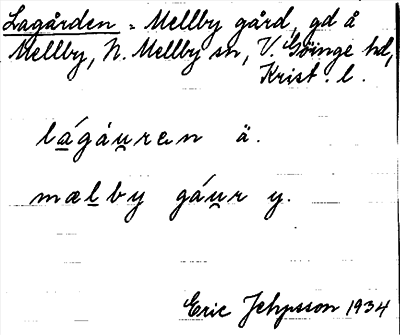 Lagården = Mellby gård, gd å
Mellby, N. Mellby sn, V. Göinge hd,
Krist. l.
lágáuren ä.
mælby gáur y.
Eric 1934